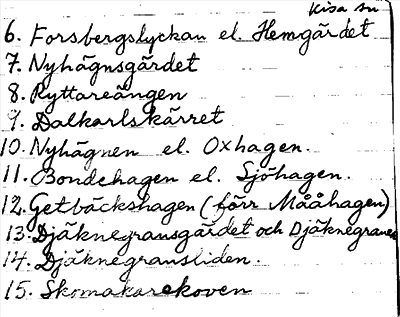 Kisa sn
6. Forsbergslyckan el. Hemgärdet
7. Nyhägnsgärdet
8. Ryttareängen
9. Dalkarlskärret
10. Nyhägnen el. Oxhagen.
11. Bondehagen el. Sjöhagen.
12. Getbäckshagen (förr Mååhagen)
13. Djäknegransgärdet och Djäknegranen
14. Djäknegransliden.
15. Skomakarekoven